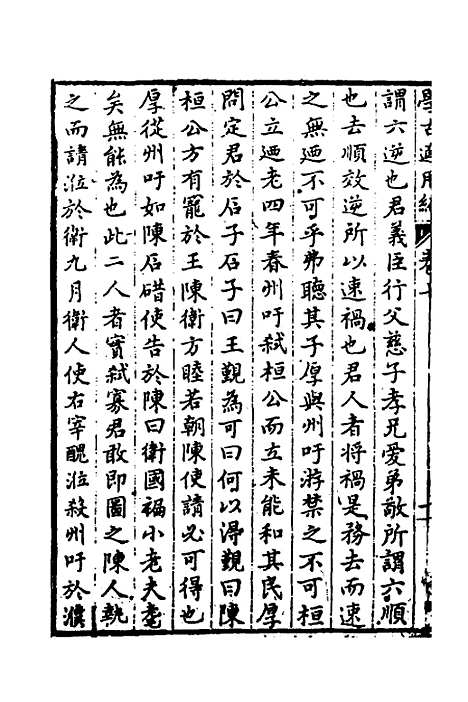 學古適用編 卷十
謂六逆也君義臣行父慈子孝兄愛弟敬所謂六順
也去順效逆所以速禍也君人者將禍是務去而速
之無迺不可乎弗聽其子厚與州吁游禁之不可桓
公立迺老四年春州吁弑桓公而立未能和其民厚
問定君於石子石子曰王覲為可曰何以淂覲曰陳
桓公方有寵於王陳衛方睦若朝陳使請必可得也
厚從州吁如陳石碏使告於陳曰衛國褊小老夫耄
矣無能為也此二人者實弑寡君敢即圖之陳人執
之而請涖於衛九月衛人使右宰醜涖殺州吁於濮